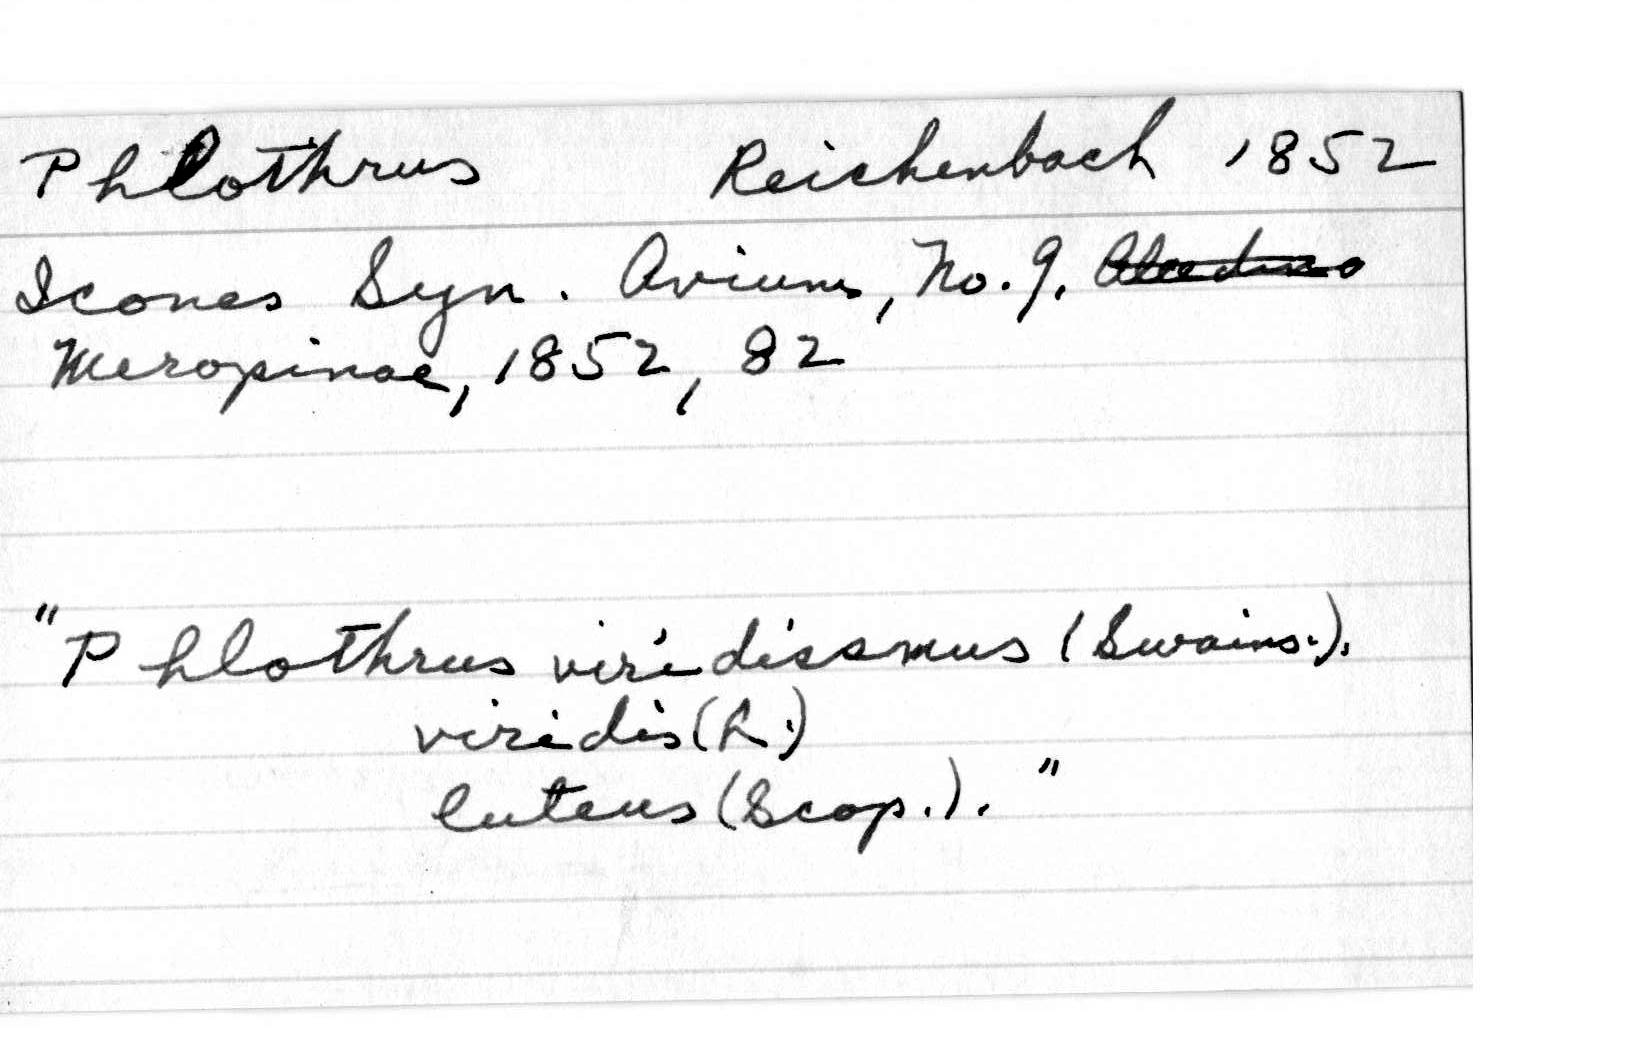 Phlothrus Reichenbach 1852
Icones Syn. Avium, No. 9,
Meropinae, 1852, 82
"Phlothrus viridissmus (Swains.).
viridis (L.)
luteus (Scop.)."